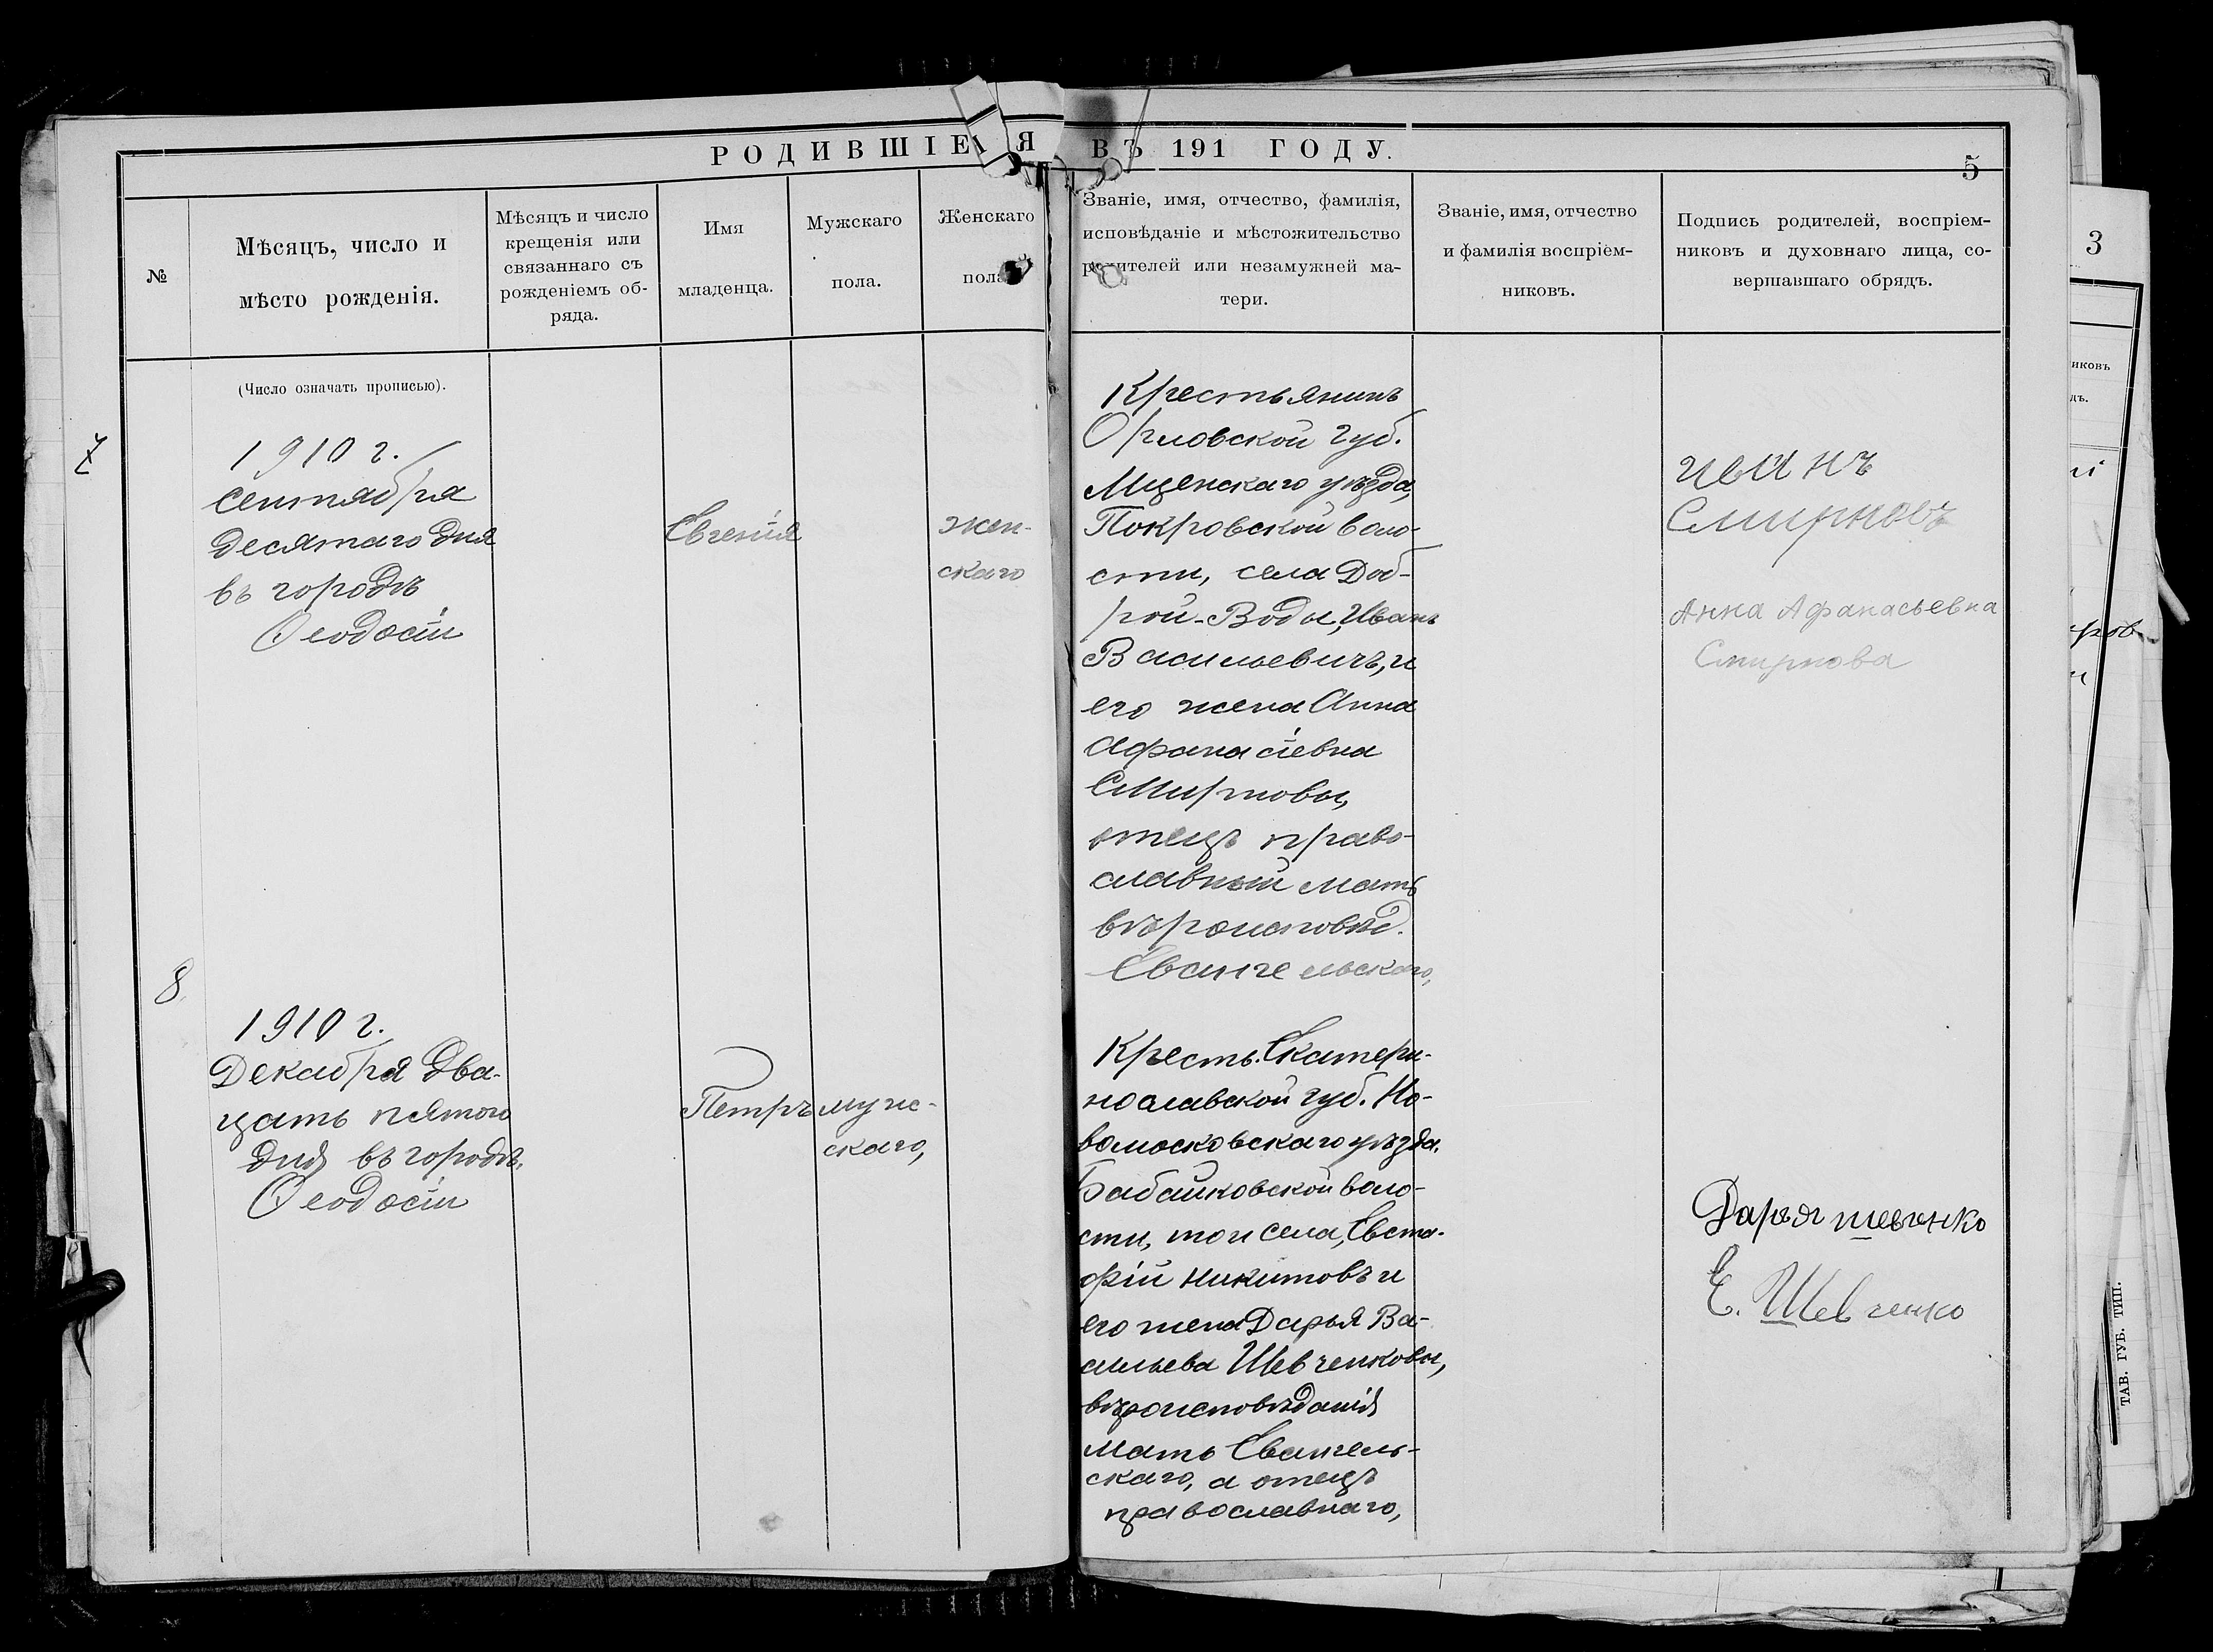 РОДИВШІЕ Я ВЪ 191 ГОДУ.
5
№
Мѣсяцъ, число и
мѣсто рожденія.
Мѣсяцъ и число
крещенія или
связаннаго съ
рожденіемъ об-
ряда.
Имя
младенца.
Мужскаго
пола.
Женскаго
пола
Званіе, имя, отчество, фамилія,
исповѣданіе и мѣстожительство
родителей или незамужней ма-
тери.
Званіе, имя, отчество
и фамилія воспріем-
никовъ.
Подпись родителей, воспріем-
никовъ и духовнаго лица, со-
вершавшаго обрядъ.
(Число означать прописью).
7
1910 г.
Сентября
десятаго дня
въ городѣ
Ѳеодосіи
Евгенія
жен-
скаго
Крестьянинъ
Орловской губ.
Мценскаго уѣзда,
Покровской воло-
сти, села Доб-
рой-Воды, Иванъ
Васильевичъ, и
его жена Анна
Афанасіевна
Смирновы,
отецъ право-
славный мать
вѣроисповѣд.
Евангельскаго,
Иванъ
Смирновъ
Анна Афанасьевна
Смирнова
8
1910 г.
Декабря два-
цать пятого
дня въ городѣ,
Ѳеодосіи
Петръ
муж-
скаго,
Кресть. Екатери-
нославской губ. Но-
вомосковскаго уѣзда,
Бабайковской воло-
сти, той села, Евста-
фій Никитовъ и
его жена Дарья Ва-
сильева Шевченковы,
вѣроисповѣданія
мать Евангель-
скаго, а отецъ
православнаго,
Дарья шевченко
Е. Шевченко
3
никовъ
дъ.
ТАВ. ГУБ. ТИП.